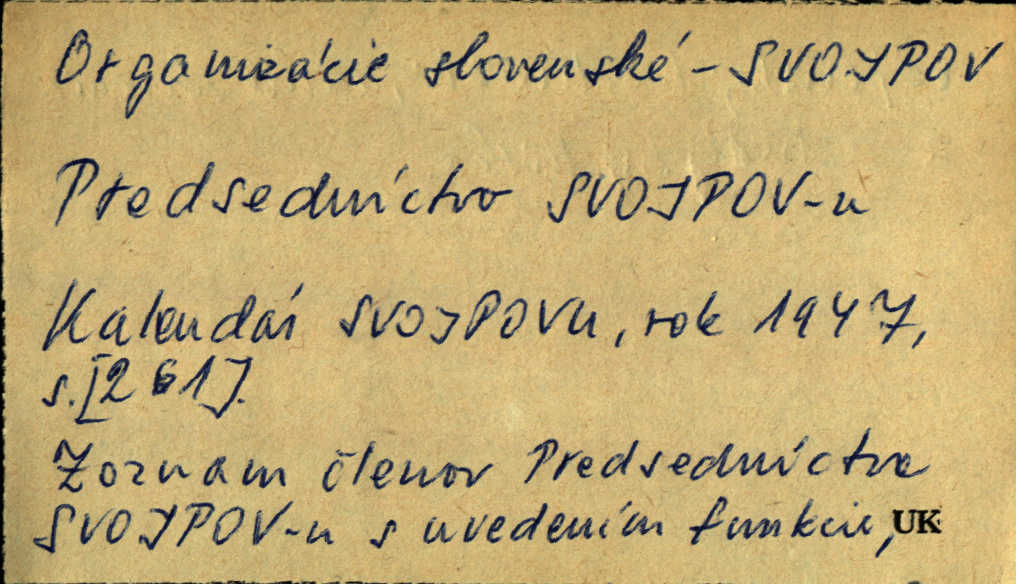 Organizácie slovenské - SVOJPOV
Predsedníctvo SVOJPOV-u
Kalendár SVOJPOVu, rok 1947,
s.[261].
Zoznam členov Predsedníctva
SVOJPOV-u s uvedením funkcie, UK